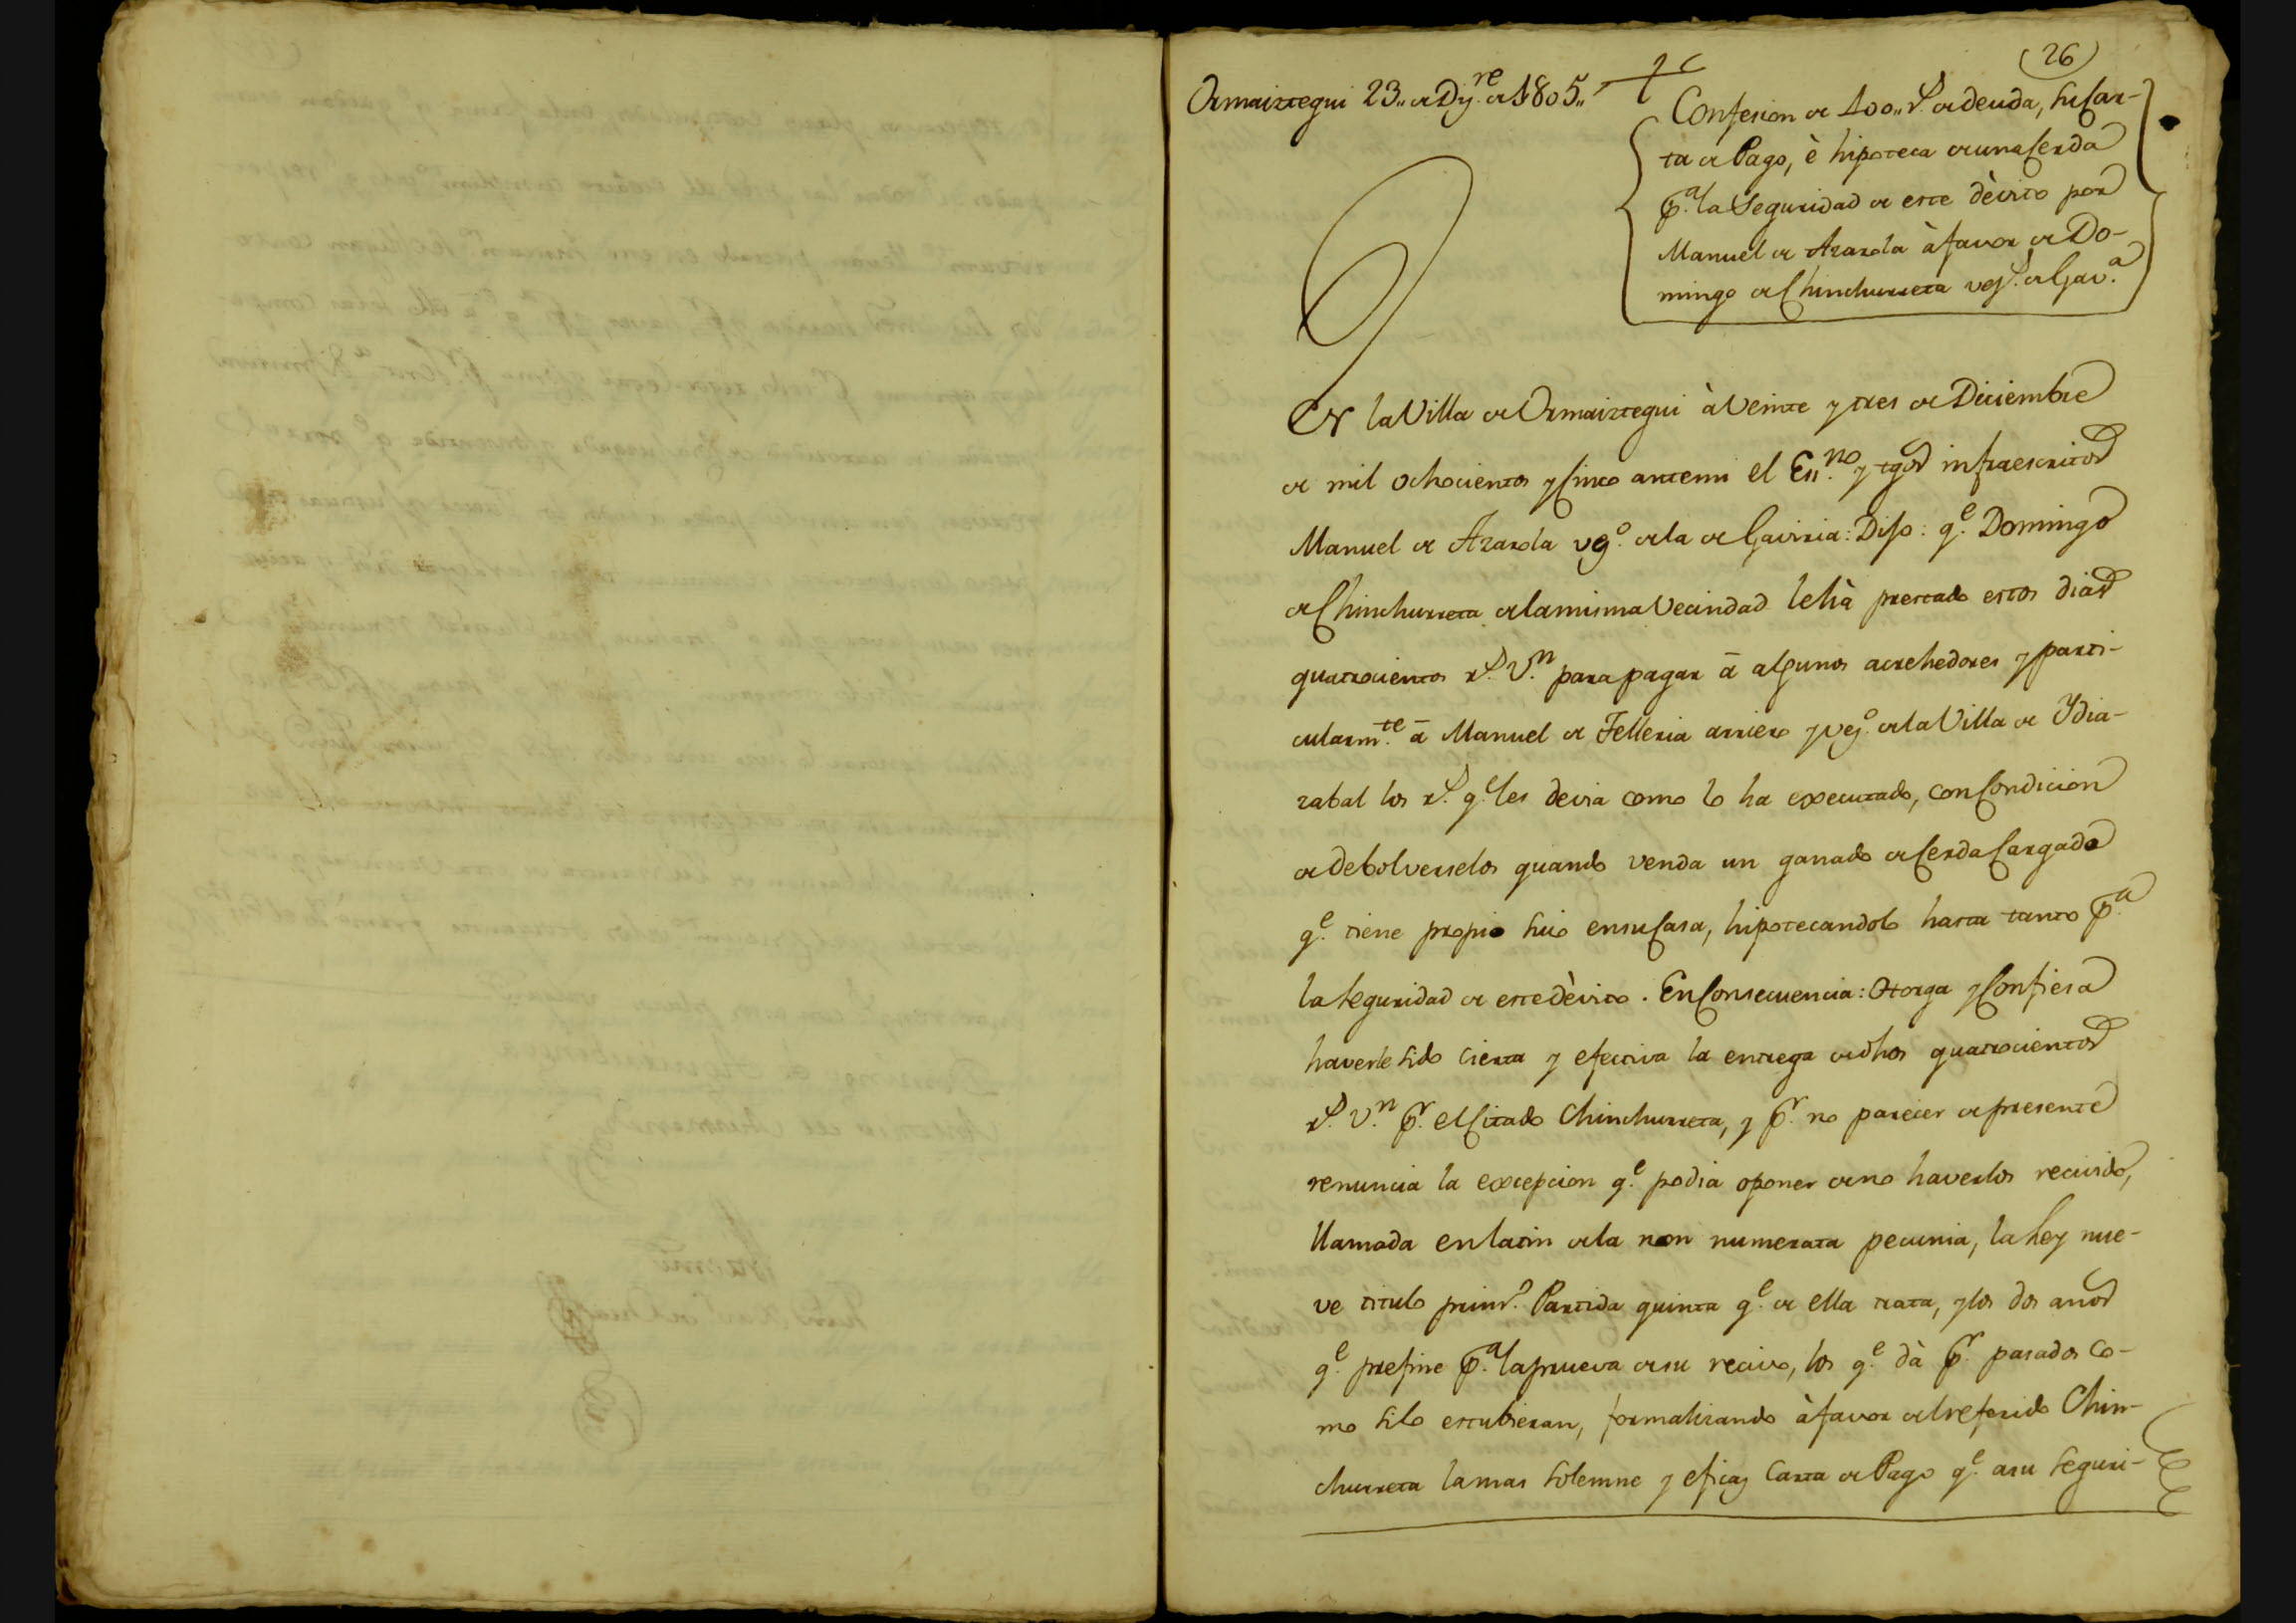 26
Ormaiztegui 23,, de Dz.re de 1805,,
Confesion de 400,, r.s de deuda, su Car-
ta de Pago, è hipoteca de una Cerda
p.a la Seguridad de este dèvito por
Manuel de Azarola à favor de Do-
mingo de Chinchurreta vez.s de Gav.a
En la Villa de Ormaiztegui à Veinte y tres de Diciembre
de mil ochocientos y Cinco ante mi el Ess.no y tgos infraescritos
Manuel de Azarola vz.o de la de Gaviria: Dijo: q.e Domingo
de Chinchurreta de la misma Vecindad le hà prestado estos dias
quatrocientos r.s V.n para pagar à algunos acrehedores y parti-
cularm.te à Manuel de Telleria arriero y vez.o de la Villa de Ydia-
zabal los r.s q.e les devia como lo ha executado, con Condicion
de debolverselos quando venda un ganado de Cerda Cargado
q.e tiene propio suio en su Casa, hipotecandolo hasta tanto p.a
la seguridad de este dèvito. En Consecuencia: Otorga y Confiesa
haverle sido cierta y efectiva la entrega de dhos quatrocientos
r.s V.n p.r el Citado Chinchurreta, y p.r no parecer de presente
renuncia la excepcion q.e podia oponer de no haverlos recivido,
llamada en latin de la non numerata pecunia, la Ley nue-
ve titulo prim.o Partida quinta q.e de ella trata, y los dos años
q.e prefine p.a la prueva de su recivo, los q.e dà p.r pasados co-
mo si lo estubieran, formalizando à favor del referido Chin-
churreta la mas solemne y eficaz Carta de Pago q.e a su seguri-